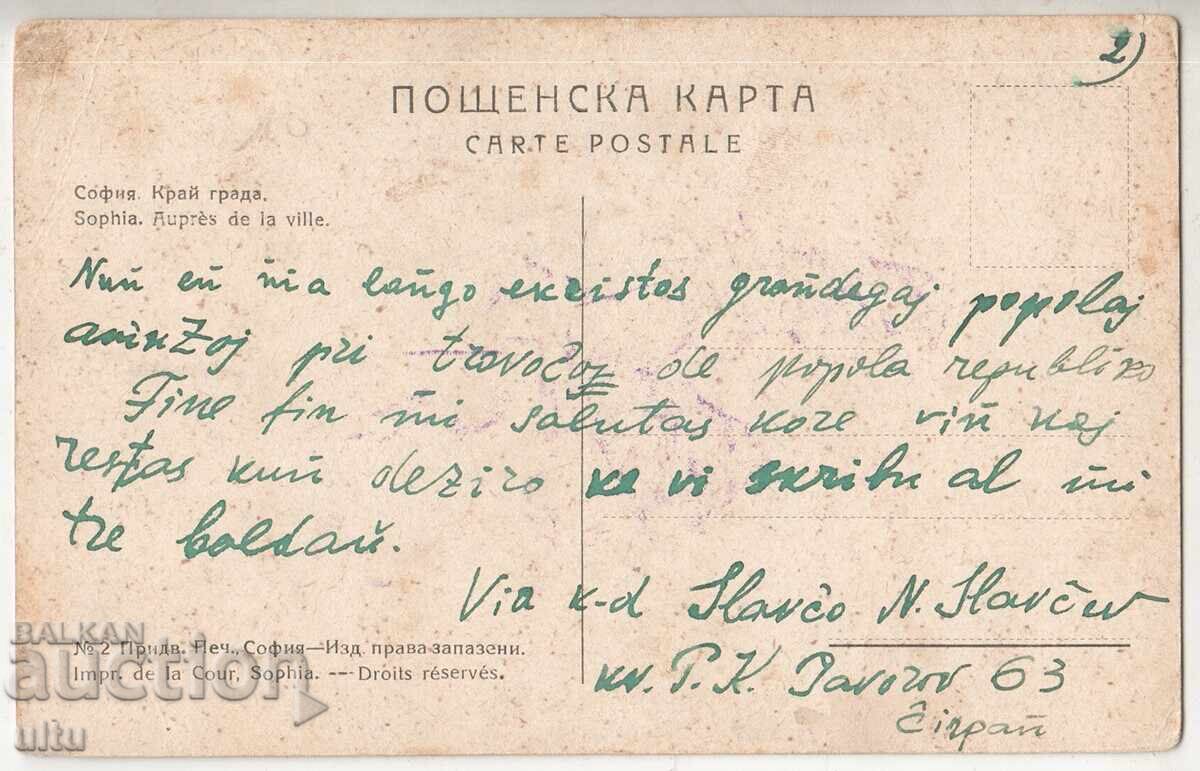 2)
ПОЩЕНСКА КАРТА
CARTE POSTALE
София. Край града.
Sophia. Auprès de la ville.
Nun en nia lango ekzistos grandegaj popolaj
pri de popola republiko
Fine fin mi salutas kore vin kaj
restas kun deziro ke vi skribu al mi
tre baldaŭ.
Via k-d Slavčo N. Slavčev
kv. P. K. Javorov 63
Čirpan
№ 2 Придв. Печ., София—Изд. права запазени.
Impr. de la Cour, Sophia. --- Droits réservés.
BALKAN
auction
ultu